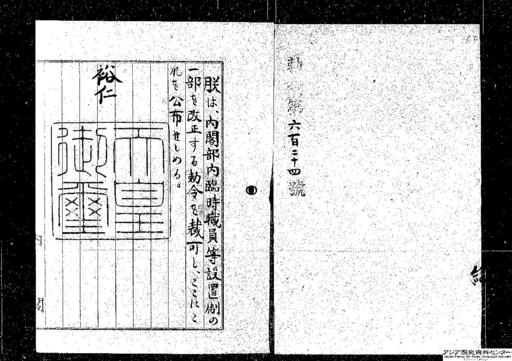 勅令第六百二十四號
朕は、內閣部內臨時職員等設置制の
一部を改正する勅令を裁可し、ここにこ
れを公布せしめる。
裕仁
天皇御璽
內閣
アジア歴史資料センター